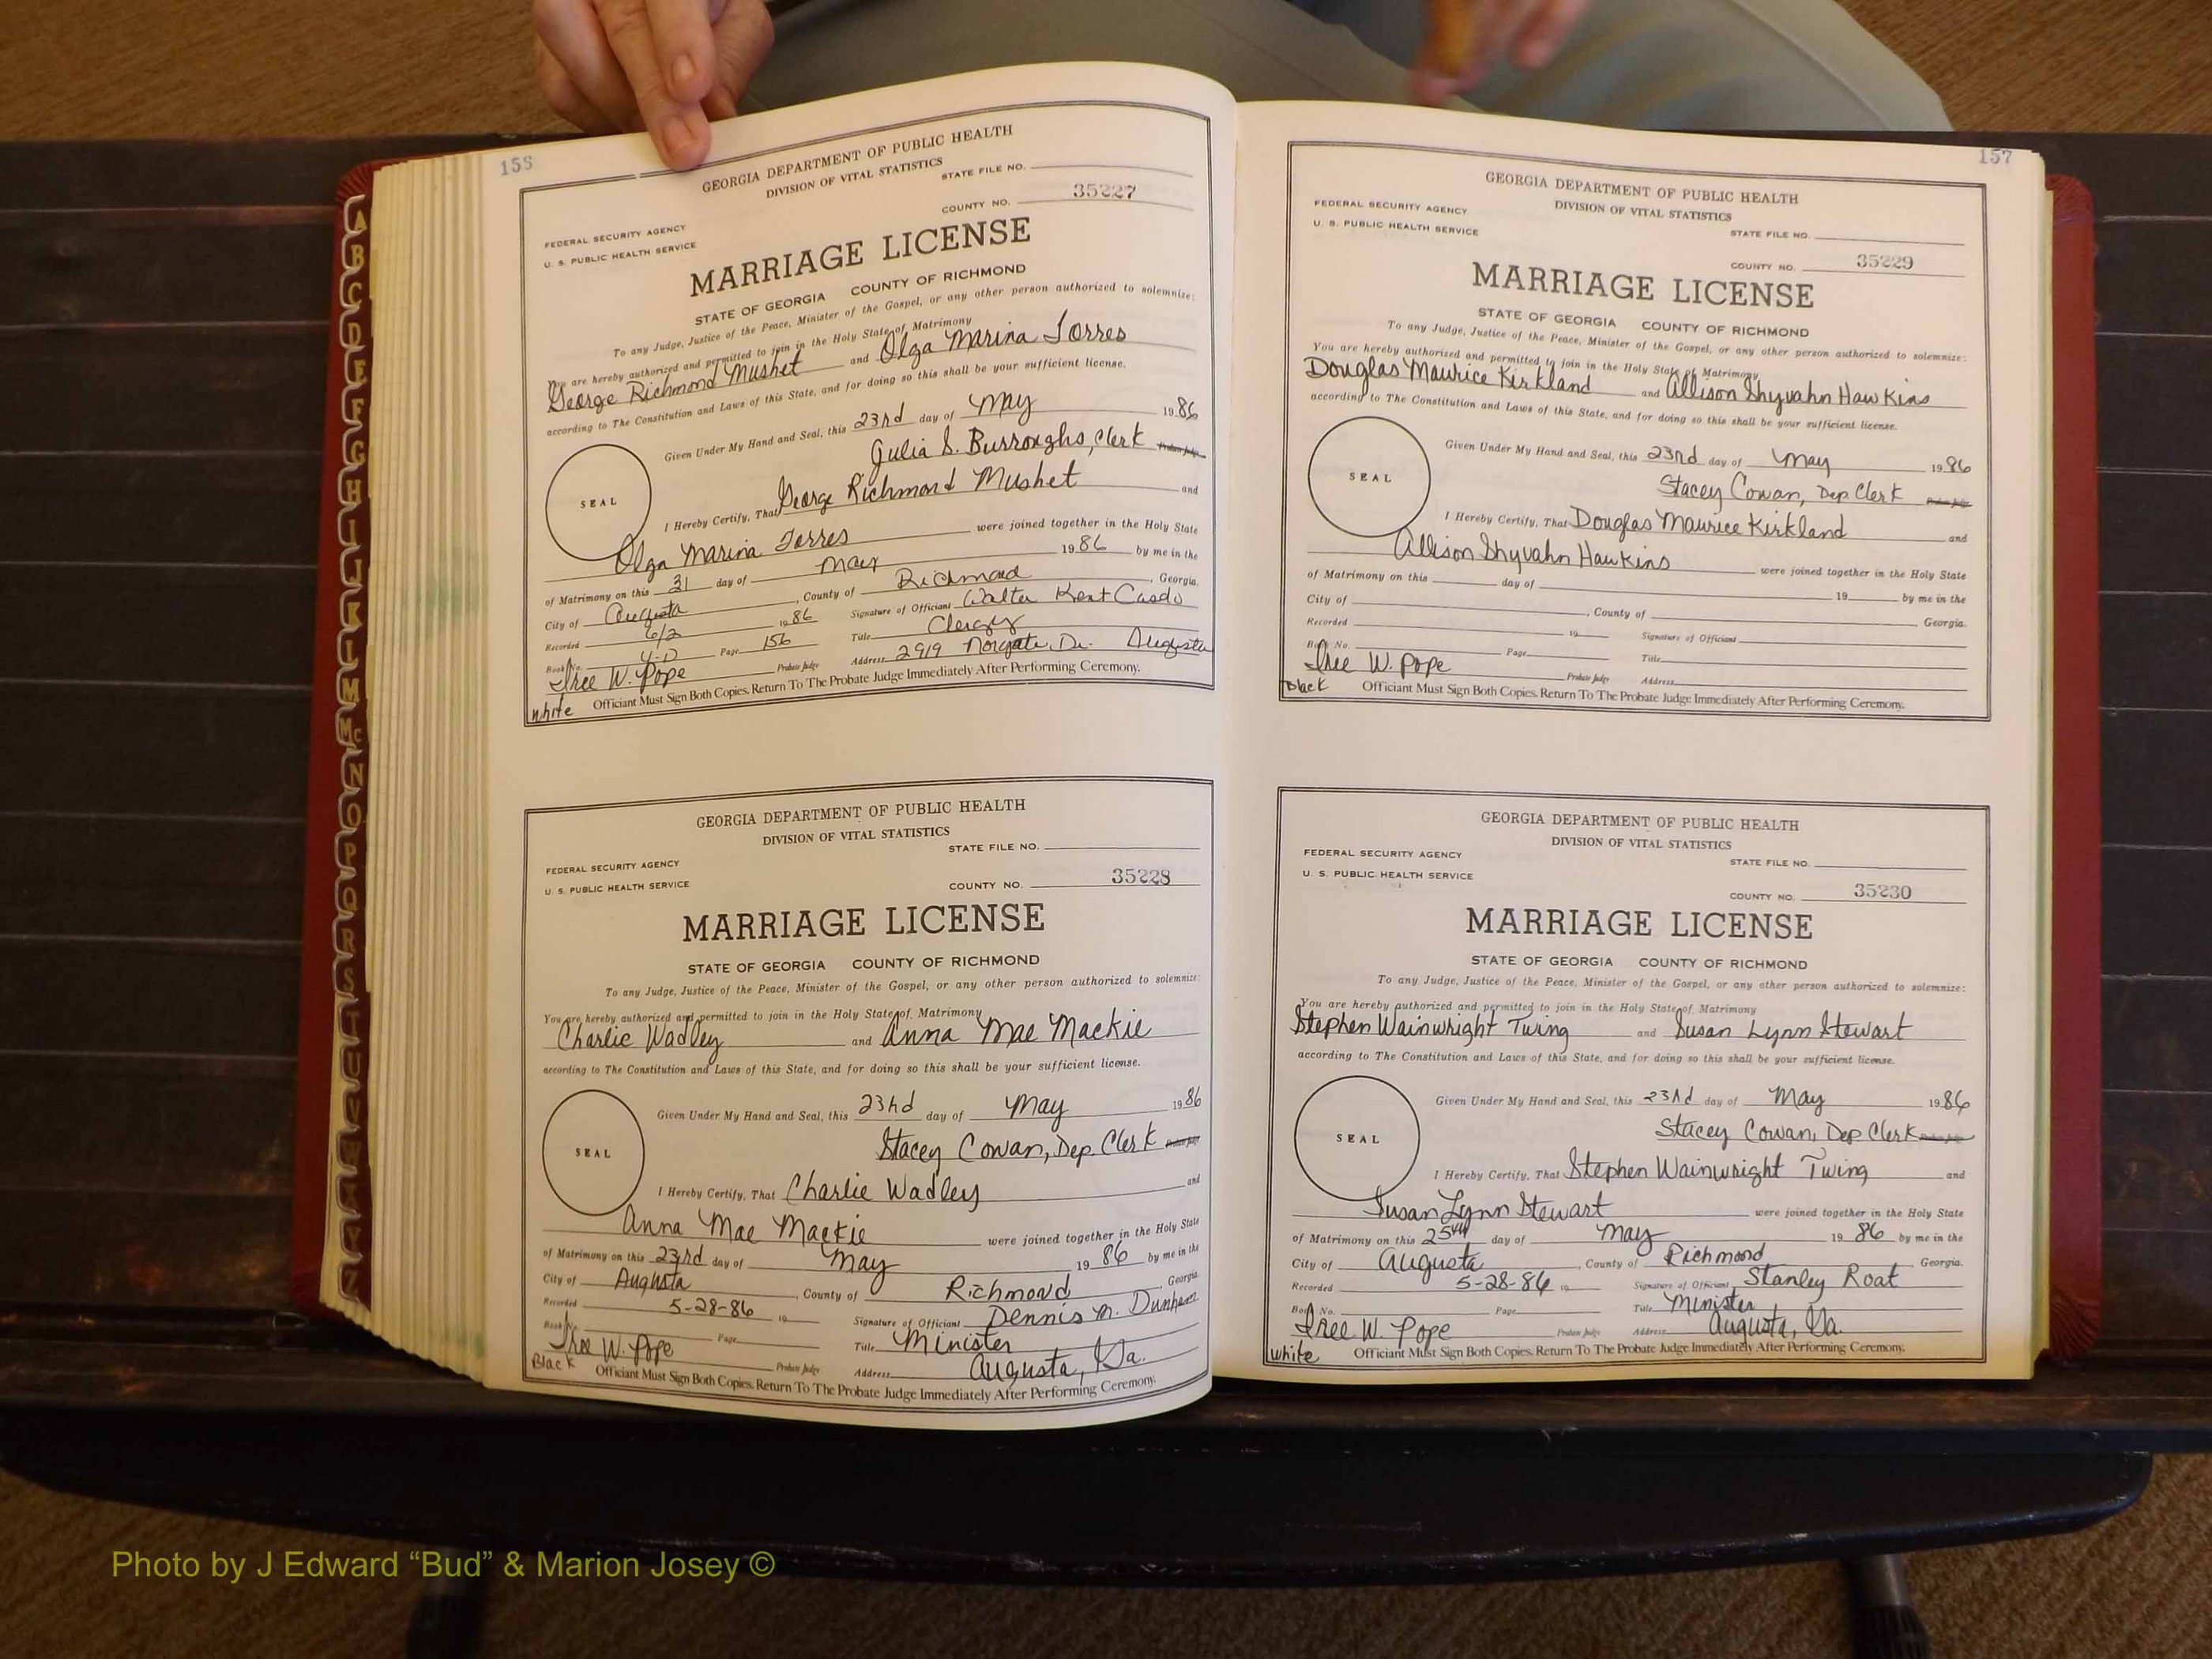 156
GEORGIA DEPARTMENT OF PUBLIC HEALTH
DIVISION OF VITAL STATISTICS
STATE FILE NO.
COUNTY NO. 35227
FEDERAL SECURITY AGENCY
U. S. PUBLIC HEALTH SERVICE
MARRIAGE LICENSE
STATE OF GEORGIA COUNTY OF RICHMOND
To any Judge, Justice of the Peace, Minister of the Gospel, or any other person authorized to solemnize:
You are hereby authorized and permitted to join in the Holy State of Matrimony
George Richmond Mushet and Olga Marina Torres
according to The Constitution and Laws of this State, and for doing so this shall be your sufficient license.
Given Under My Hand and Seal, this 23rd day of May 1986
Julia S. Burroughs, Clerk Probate Judge
SEAL
I Hereby Certify, That George Richmond Mushet and
Olga Marina Torres were joined together in the Holy State
of Matrimony on this 31 day of May 1986 by me in the
City of Augusta, County of Richmond, Georgia.
Recorded 6/2 1986 Signature of Officiant Walter Kent
Book No. 4-D Page 156 Title Clergy
Iree W. Pope Probate Judge Address 2919 Norgate Dr. Augusta
White Officiant Must Sign Both Copies. Return To The Probate Judge Immediately After Performing Ceremony.
GEORGIA DEPARTMENT OF PUBLIC HEALTH
DIVISION OF VITAL STATISTICS
STATE FILE NO.
FEDERAL SECURITY AGENCY
U. S. PUBLIC HEALTH SERVICE
COUNTY NO. 35228
MARRIAGE LICENSE
STATE OF GEORGIA COUNTY OF RICHMOND
To any Judge, Justice of the Peace, Minister of the Gospel, or any other person authorized to solemnize:
You are hereby authorized and permitted to join in the Holy State of Matrimony
Charlie Wadley and Anna Mae Mackie
according to The Constitution and Laws of this State, and for doing so this shall be your sufficient license.
Given Under My Hand and Seal, this 23rd day of May 1986
Stacey Cowan, Dep. Clerk Probate Judge
SEAL
I Hereby Certify, That Charlie Wadley and
Anna Mae Mackie were joined together in the Holy State
of Matrimony on this 23rd day of May 1986 by me in the
City of Augusta, County of Richmond, Georgia.
Recorded 5-28-86 19 Signature of Officiant Dennis M. Dunham
Book No. Page Title Minister
Iree W. Pope Probate Judge Address Augusta, Ga.
Black Officiant Must Sign Both Copies. Return To The Probate Judge Immediately After Performing Ceremony.
157
GEORGIA DEPARTMENT OF PUBLIC HEALTH
DIVISION OF VITAL STATISTICS
FEDERAL SECURITY AGENCY
U. S. PUBLIC HEALTH SERVICE
STATE FILE NO.
COUNTY NO. 35229
MARRIAGE LICENSE
STATE OF GEORGIA COUNTY OF RICHMOND
To any Judge, Justice of the Peace, Minister of the Gospel, or any other person authorized to solemnize:
You are hereby authorized and permitted to join in the Holy State of Matrimony
Douglas Maurice Kirkland and Allison Shyvahn Hawkins
according to The Constitution and Laws of this State, and for doing so this shall be your sufficient license.
Given Under My Hand and Seal, this 23rd day of May 1986
Stacey Cowan, Dep. Clerk Probate Judge
SEAL
I Hereby Certify, That Douglas Maurice Kirkland and
Allison Shyvahn Hawkins were joined together in the Holy State
of Matrimony on this day of 19 by me in the
City of , County of Georgia.
Recorded 19 Signature of Officiant
Book No. Page Title
Iree W. Pope Probate Judge Address
Black Officiant Must Sign Both Copies. Return To The Probate Judge Immediately After Performing Ceremony.
GEORGIA DEPARTMENT OF PUBLIC HEALTH
DIVISION OF VITAL STATISTICS
FEDERAL SECURITY AGENCY
U. S. PUBLIC HEALTH SERVICE
STATE FILE NO.
COUNTY NO. 35230
MARRIAGE LICENSE
STATE OF GEORGIA COUNTY OF RICHMOND
To any Judge, Justice of the Peace, Minister of the Gospel, or any other person authorized to solemnize:
You are hereby authorized and permitted to join in the Holy State of Matrimony
Stephen Wainwright Twing and Susan Lynn Stewart
according to The Constitution and Laws of this State, and for doing so this shall be your sufficient license.
Given Under My Hand and Seal, this 23rd day of May 1986
Stacey Cowan, Dep Clerk
SEAL
I Hereby Certify, That Stephen Wainwright Twing and
Susan Lynn Stewart were joined together in the Holy State
of Matrimony on this 25th day of May 1986 by me in the
City of Augusta, County of Richmond Georgia.
Recorded 5-28-86 19 Signature of Officiant Stanley Roat
Book No. Page Title Minister
Iree W. Pope Probate Judge Address Augusta, Ga.
White Officiant Must Sign Both Copies. Return To The Probate Judge Immediately After Performing Ceremony.
A
B
C
D
E
F
G
H
I
J
K
L
M
Mc
N
O
P
Q
R
S
T
U
V
W
X
Y
Z
Photo by J Edward “Bud” & Marion Josey ©